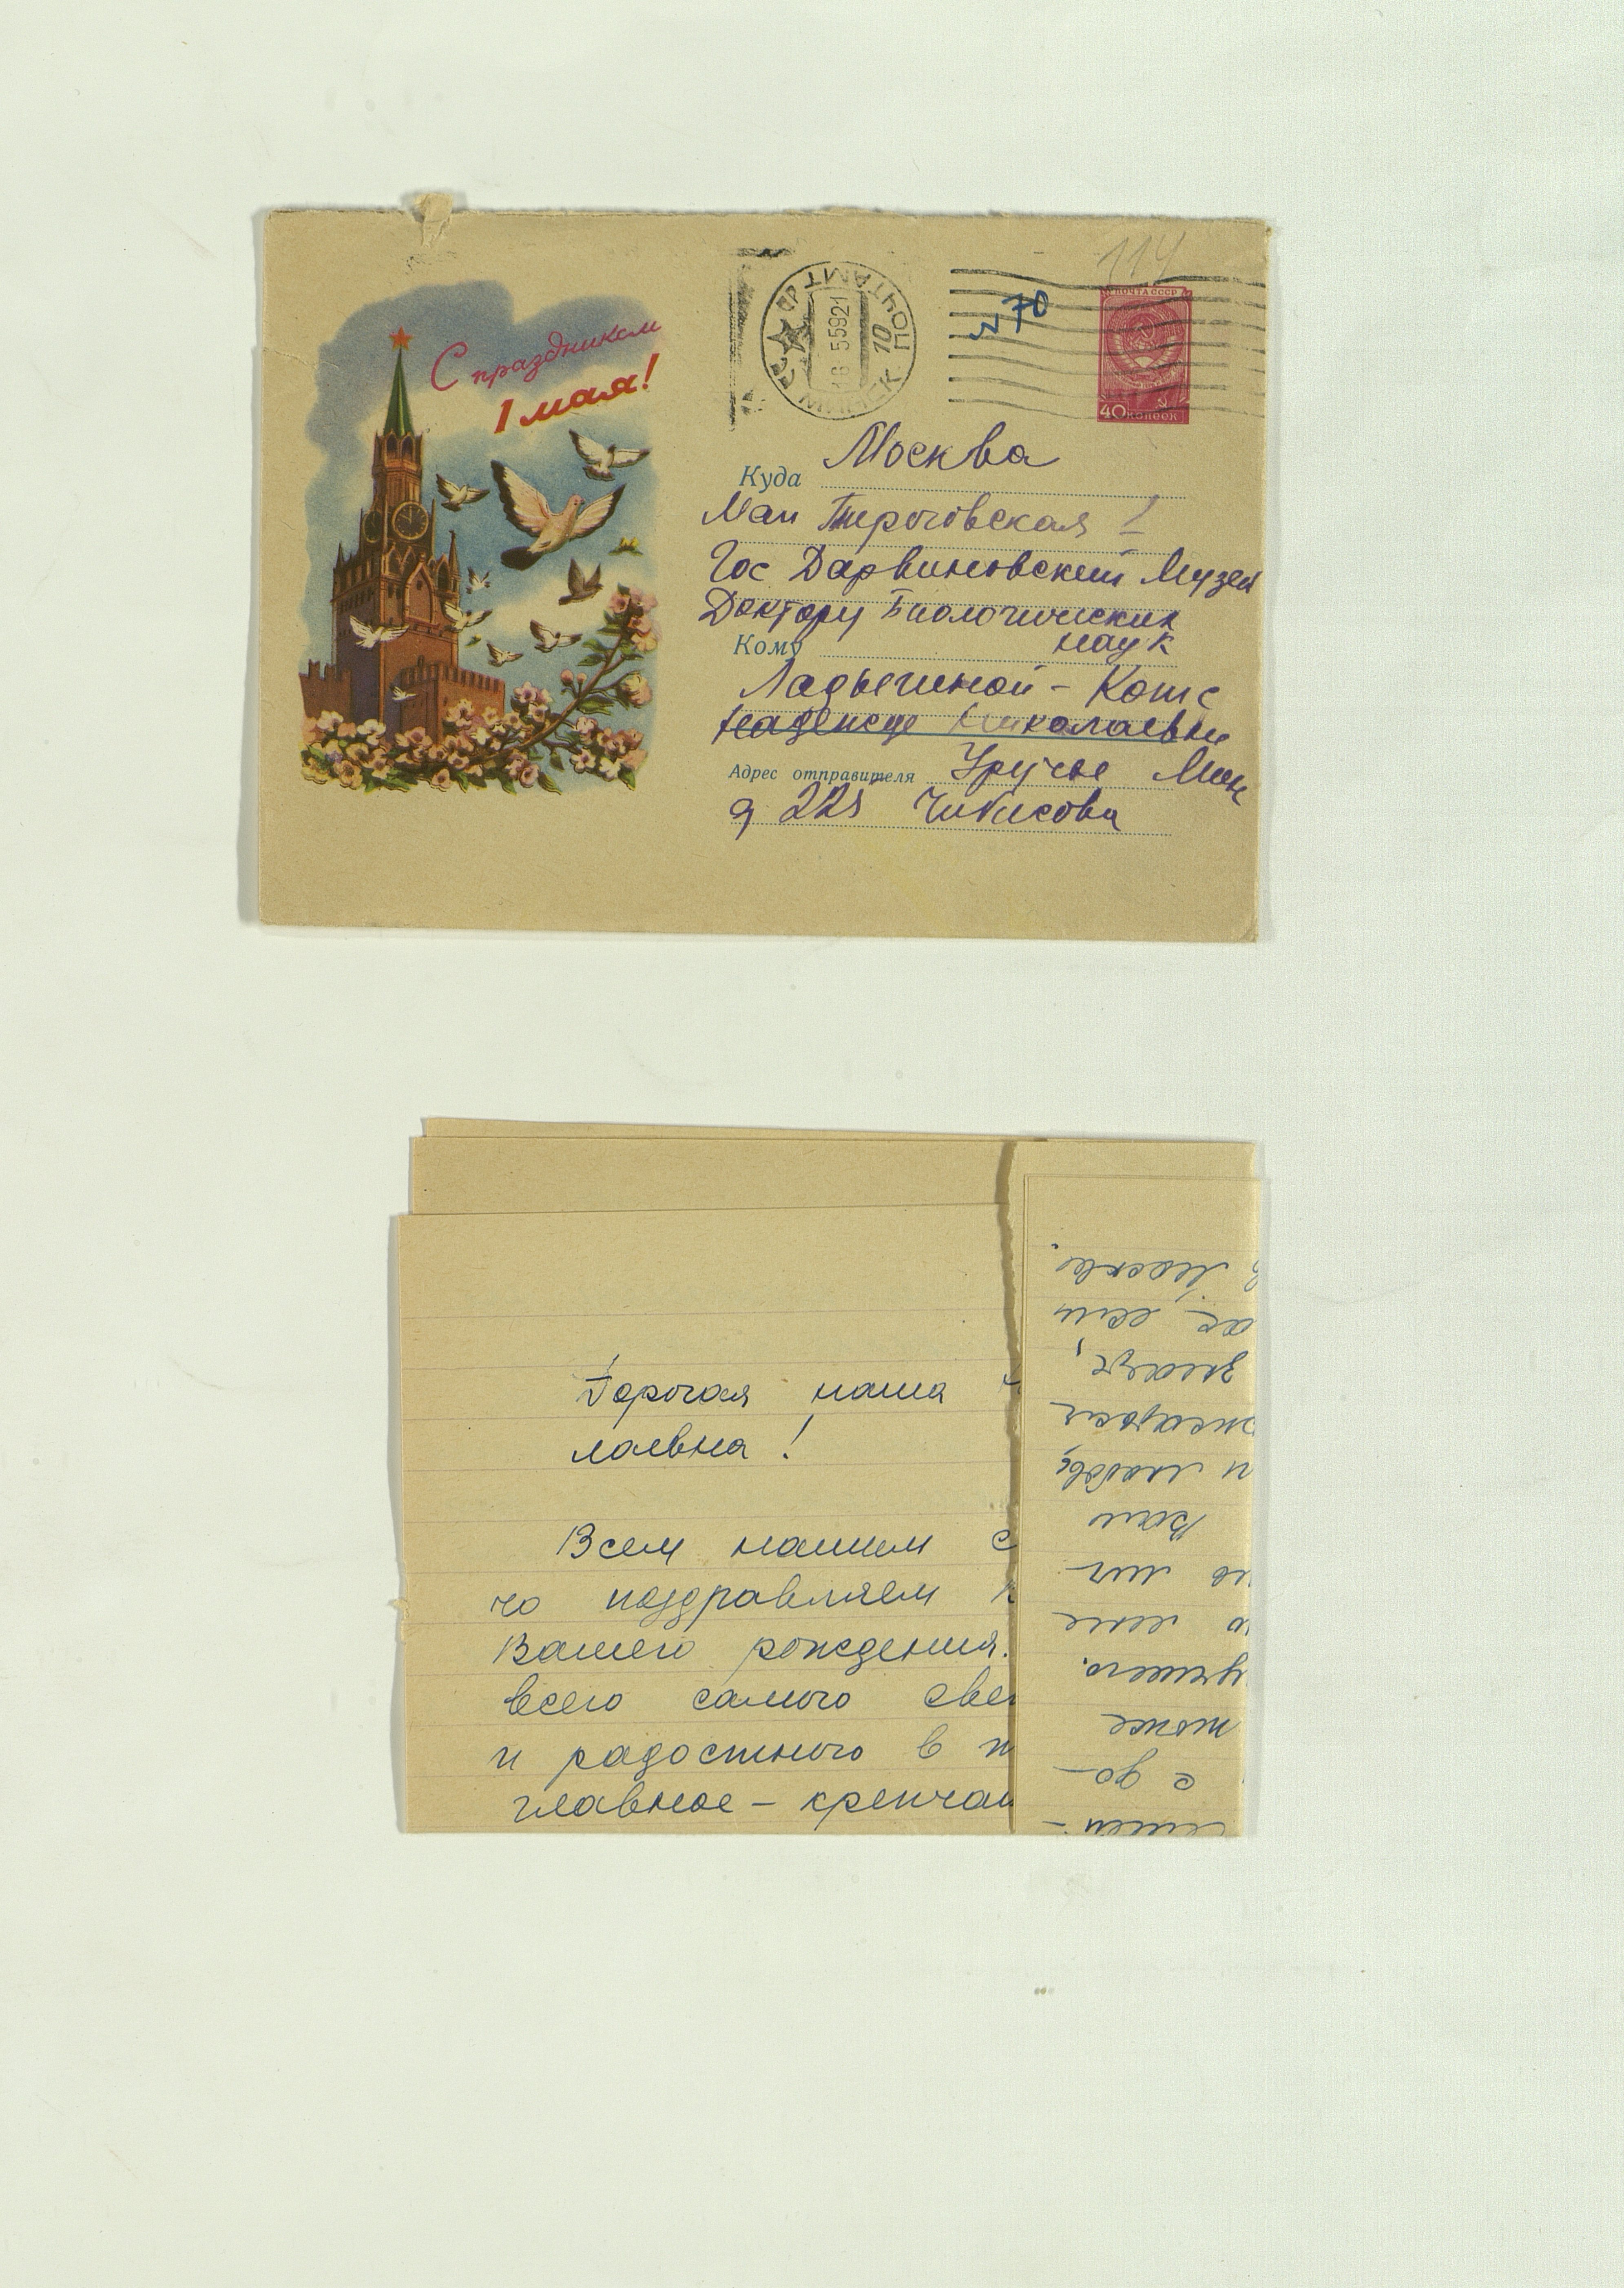 С праздником
1 мая!
МИНСК ПОЧТАМТ
10
ПОЧТА СССР
40 КОПЕЕК
114
№ 70
Куда Москва
Мал Пироговская 1
Гос Дарвиновский Музей
Доктору Биологических
наук
Кому
Ладыгиной - Котс
Надежде Николаевне
Адрес отправителя Уручье Минс
д 225 Чибисова
Дорогая наша
лаевна!
Всем нашим с
го поздравляем
Вашего рождения.
всего самого свет
и радостного в
главное - крепчай
в Москве.
ас, если
знаю,
и любовь,
Вам
но мет-
о мне
лучшего.
тоже
с до-